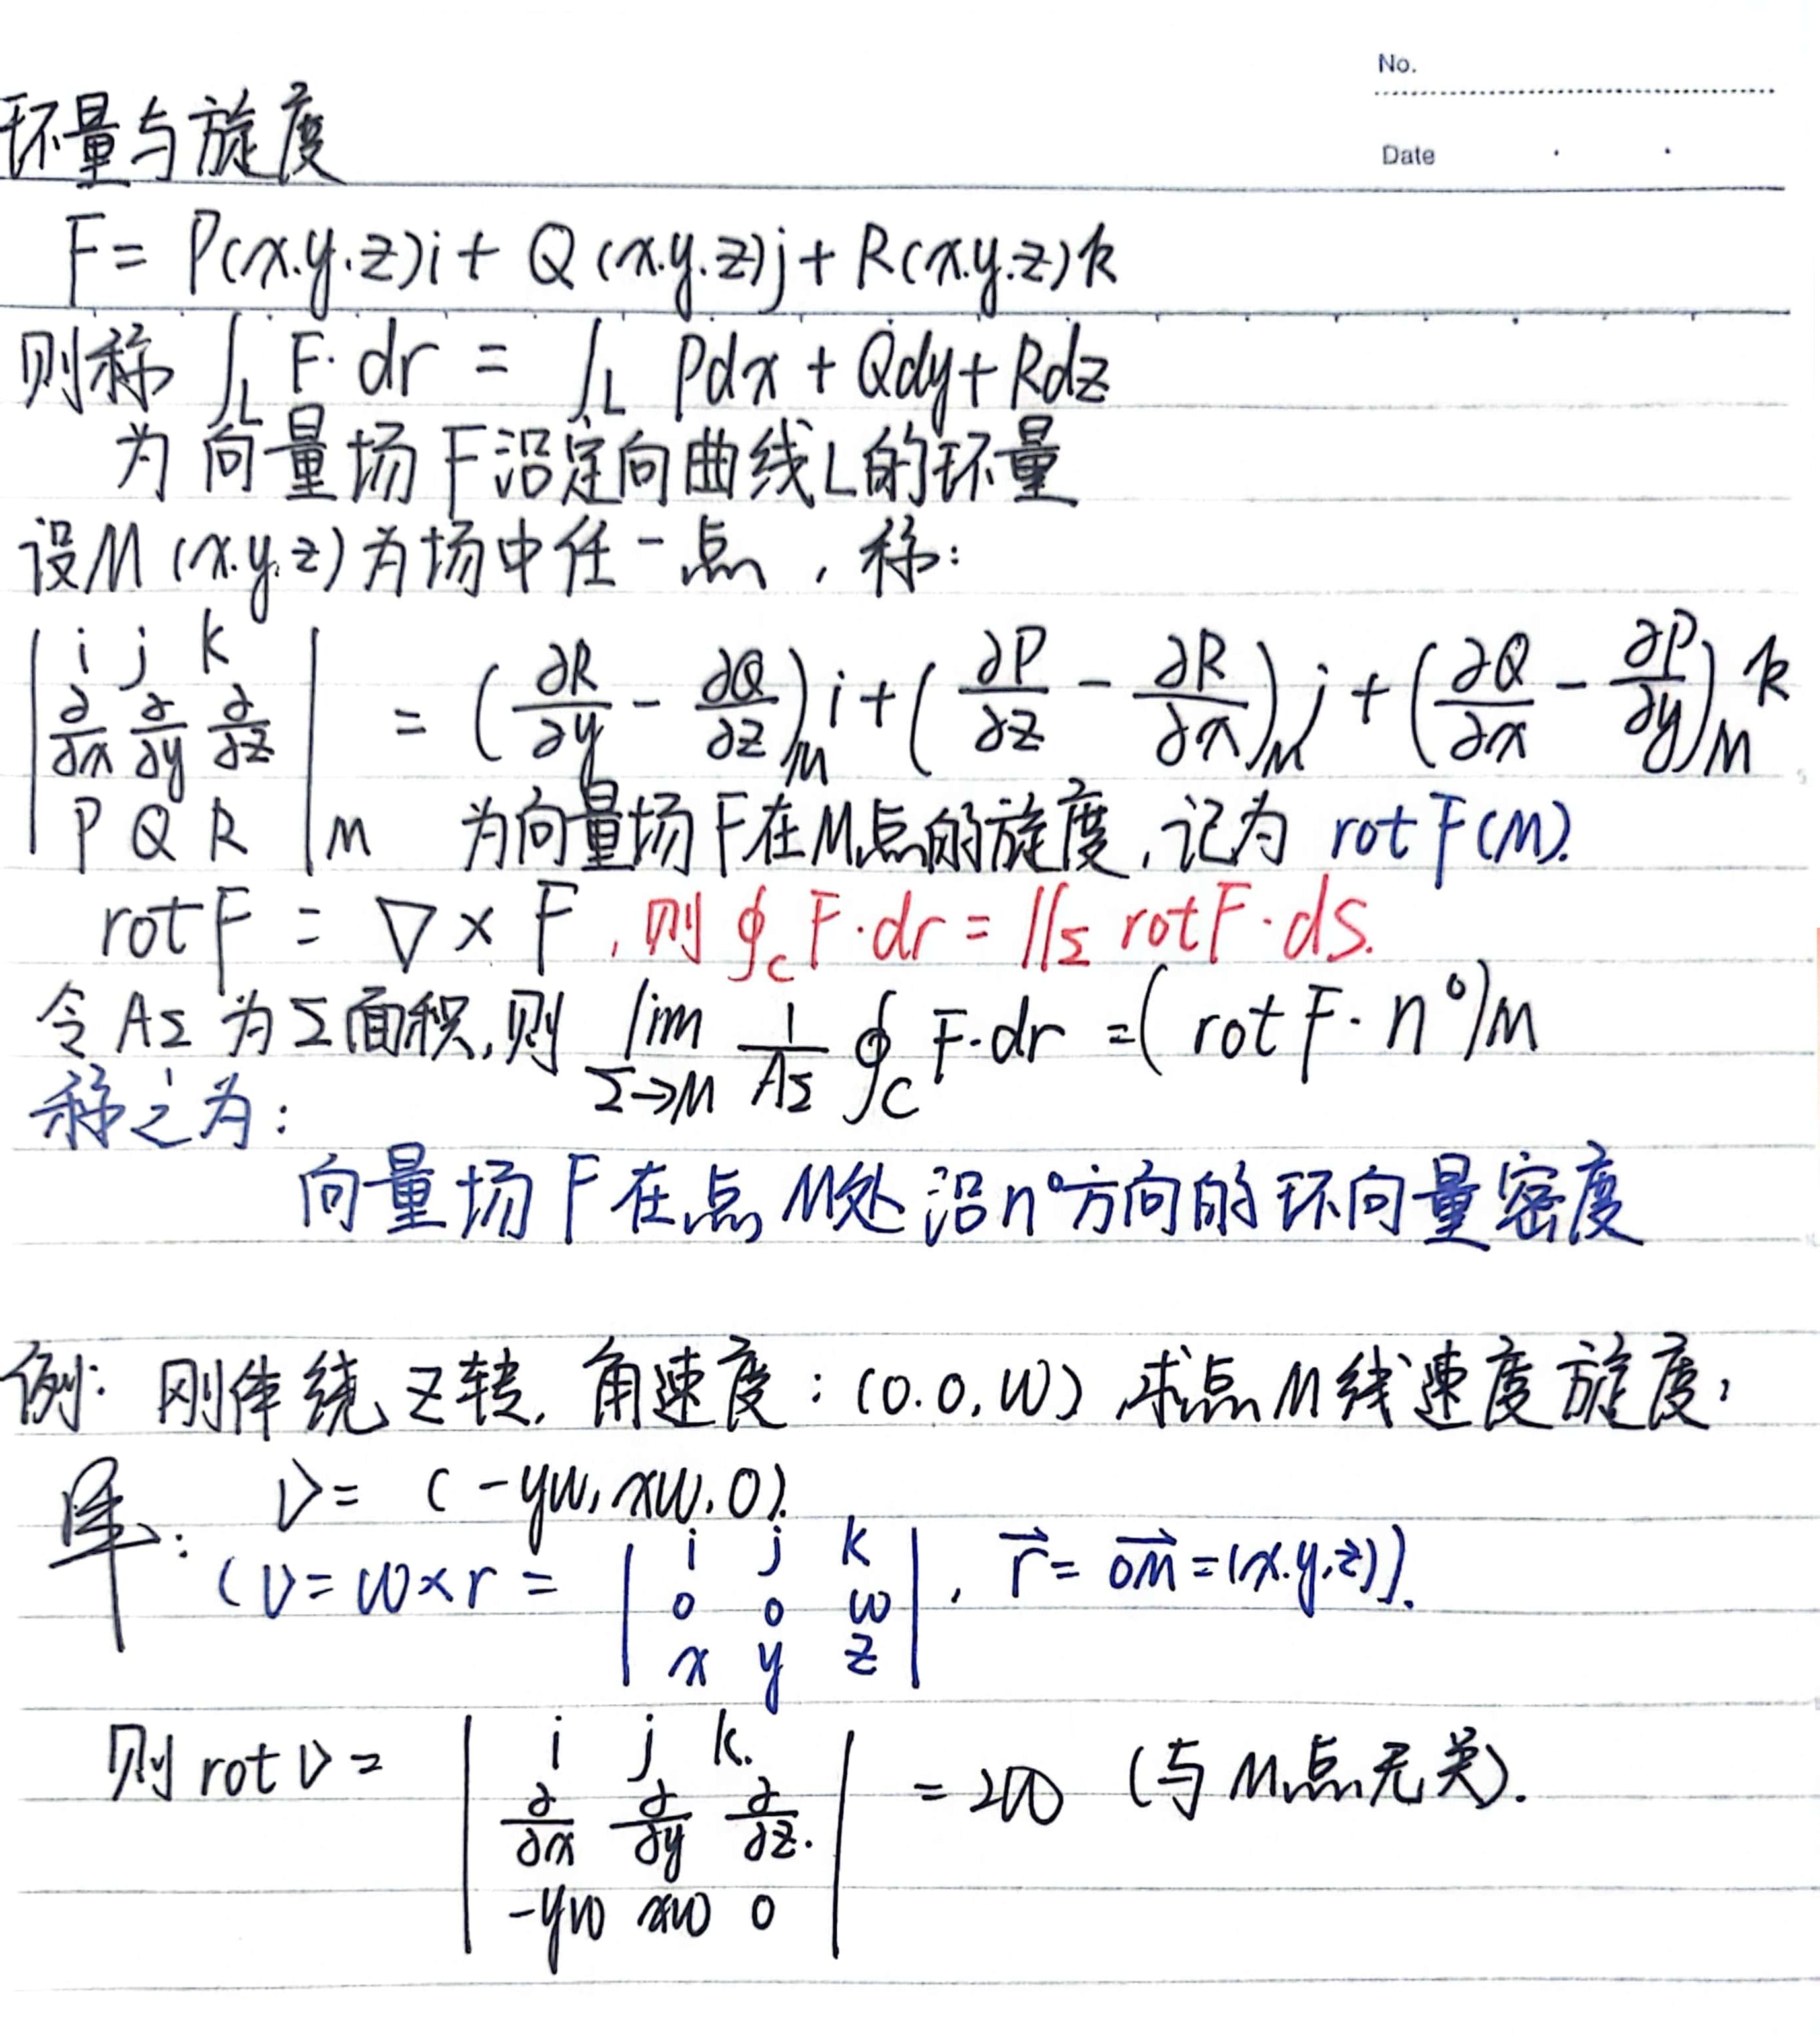 No.
Date
环量与旋度
F = P(x.y.z)i + Q(x.y.z)j + R(x.y.z)k
则称 ∫_L F·dr = ∫_L Pdx + Qdy + Rdz
为向量场F沿定向曲线L的环量
设M(x.y.z)为场中任一点,称:
| i j k |
| ∂/∂x ∂/∂y ∂/∂z | = (∂R/∂y - ∂Q/∂z)_M i + (∂P/∂z - ∂R/∂x)_M j + (∂Q/∂x - ∂P/∂y)_M k
| P Q R |_M 为向量场F在M点的旋度,记为 rotF(M).
rotF = ∇×F,则 ∮_C F·dr = ∬_Σ rotF·dS.
令AΣ为Σ面积,则 lim_{Σ→M} 1/AΣ ∮_C F·dr = (rotF·n°)_M
称之为:
向量场F在点M处沿n°方向的环向量密度
例: 刚体绕Z转, 角速度:(0.0,W) 求点M线速度旋度:
解: V = (-yw, xw, 0).
(V = W×r = | i j k |, r⃗ = OM⃗ = (x.y.z)).
| 0 0 w |
| x y z |
则 rotV = | i j k. |
| ∂/∂x ∂/∂y ∂/∂z. | = 2W (与M点无关).
| -yw xw 0 |